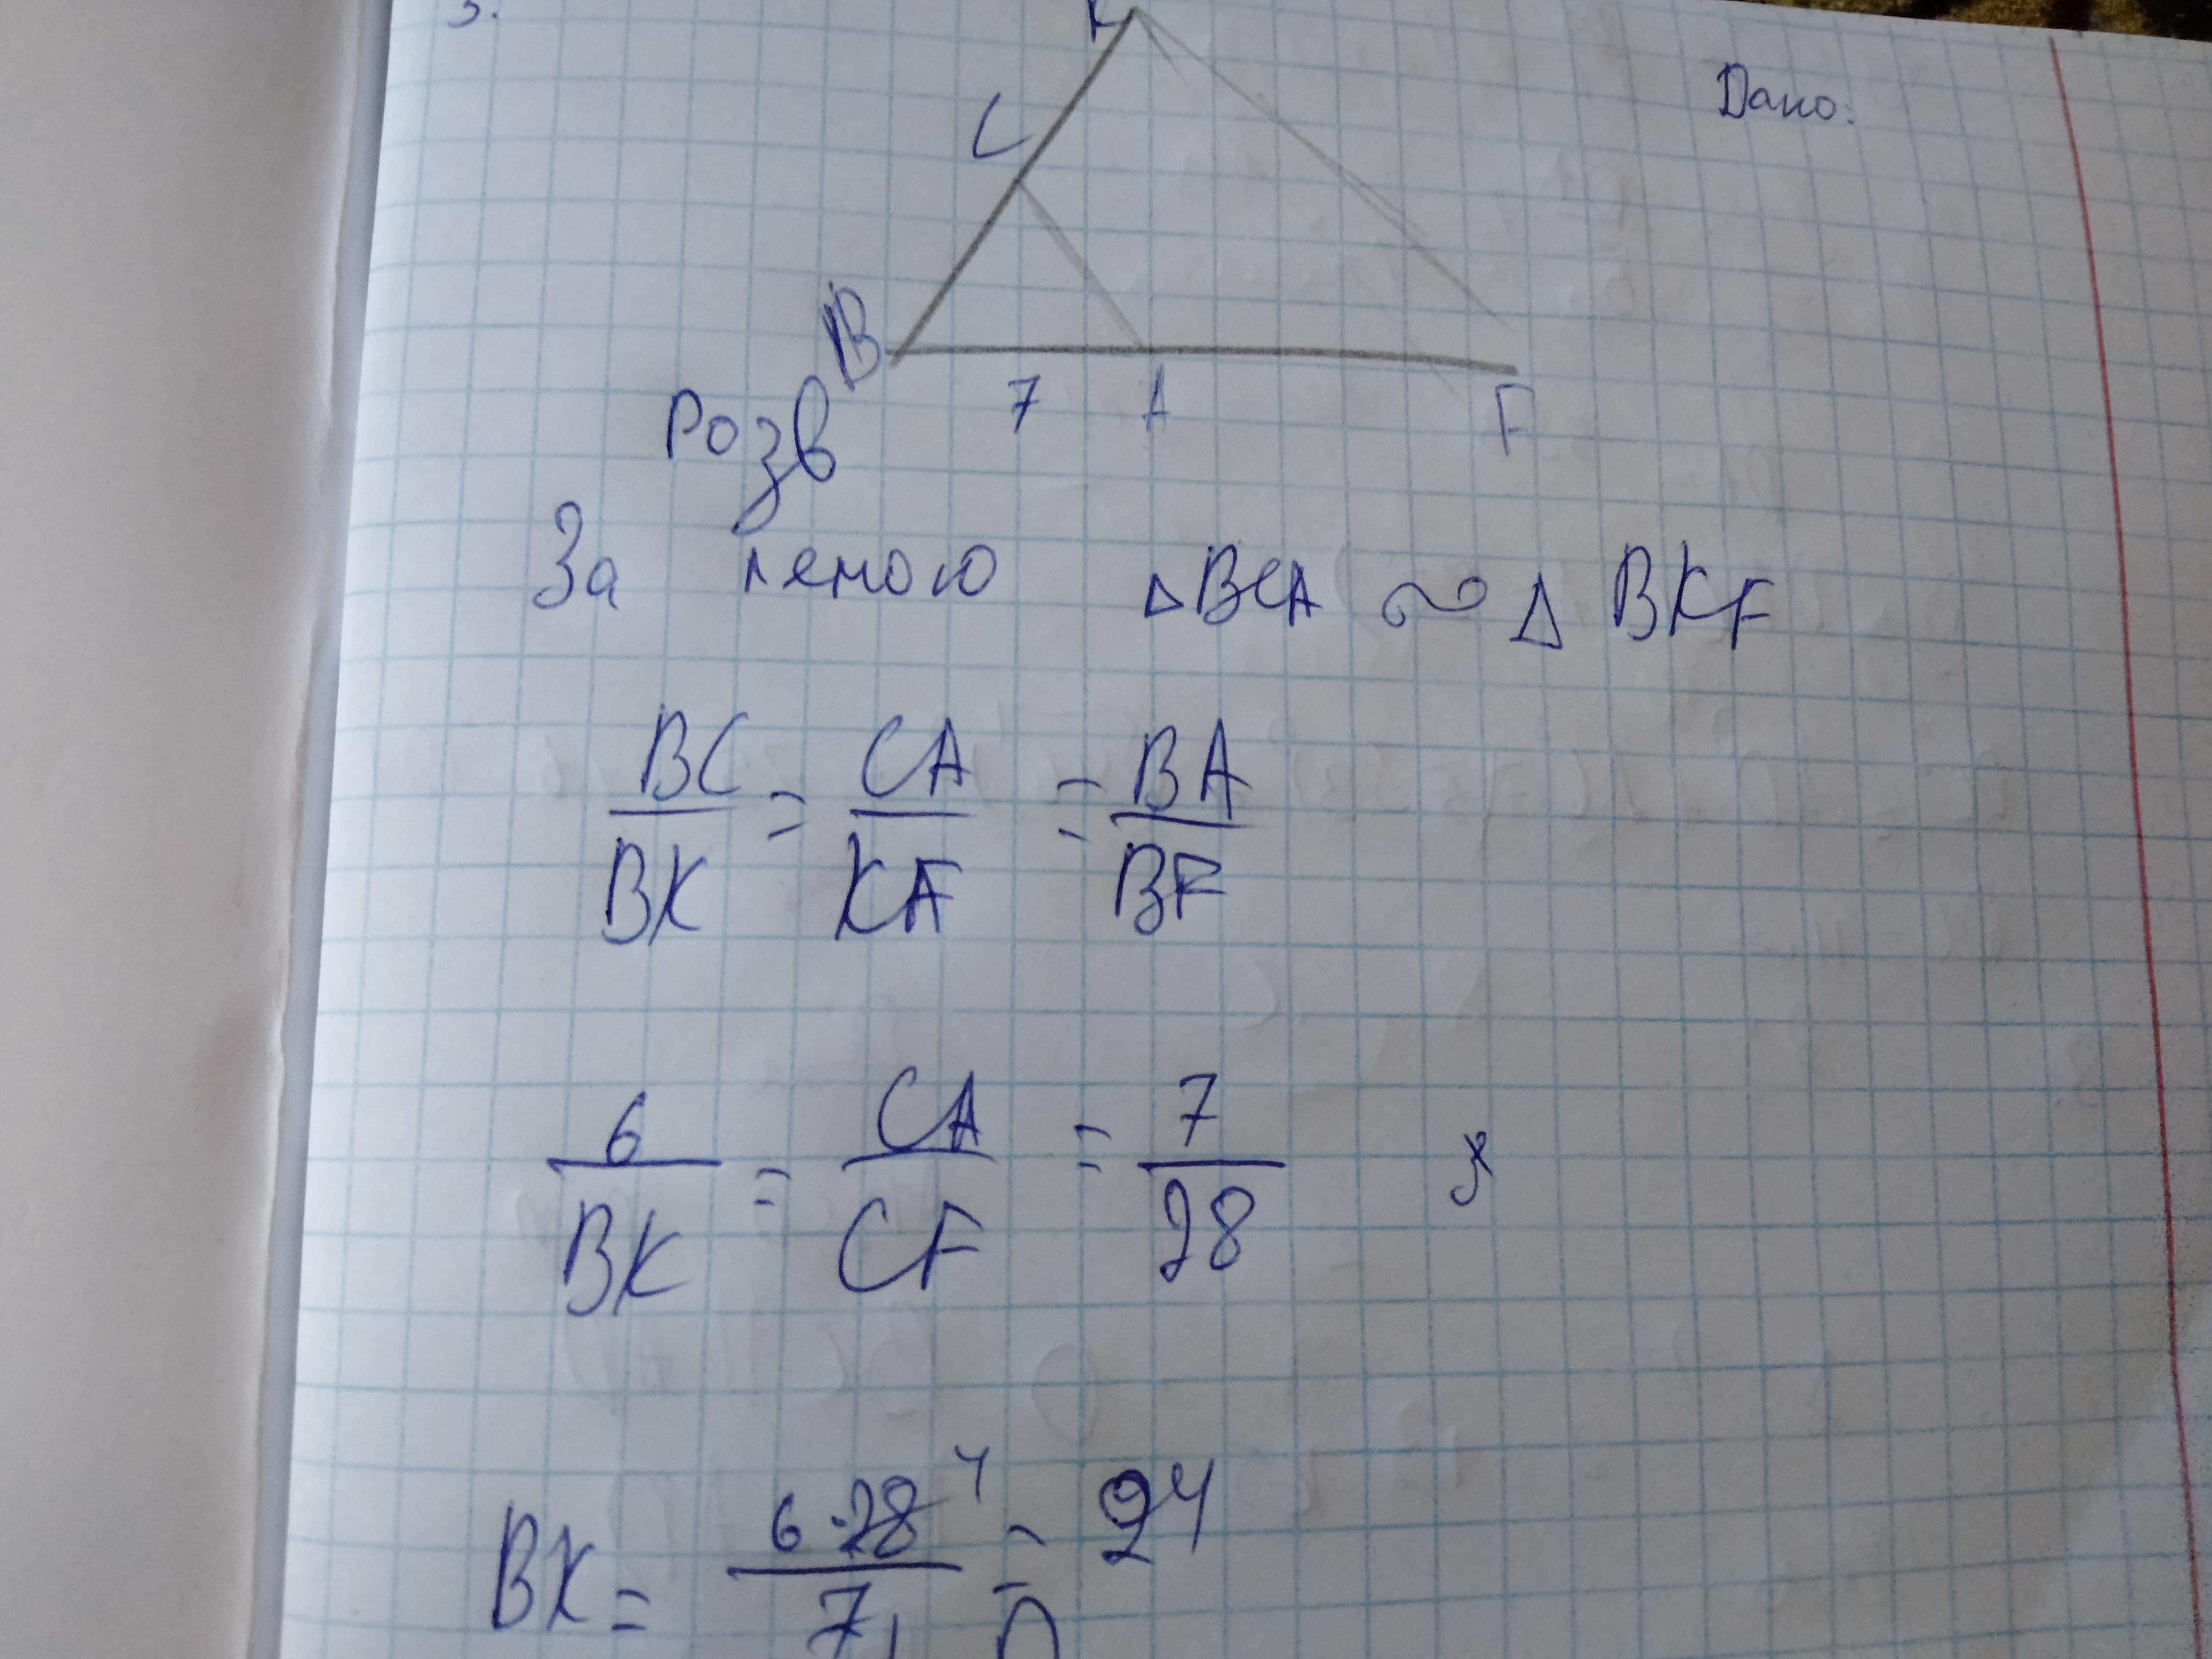 3.
K
Дано:
C
B
7 A F
Розв
За лемою △BCA ∾ △ BKF
BC/BK = CA/KF = BA/BF
6/BK = CA/CF = 7/28
BK = 6·28 4/7 1 = 24